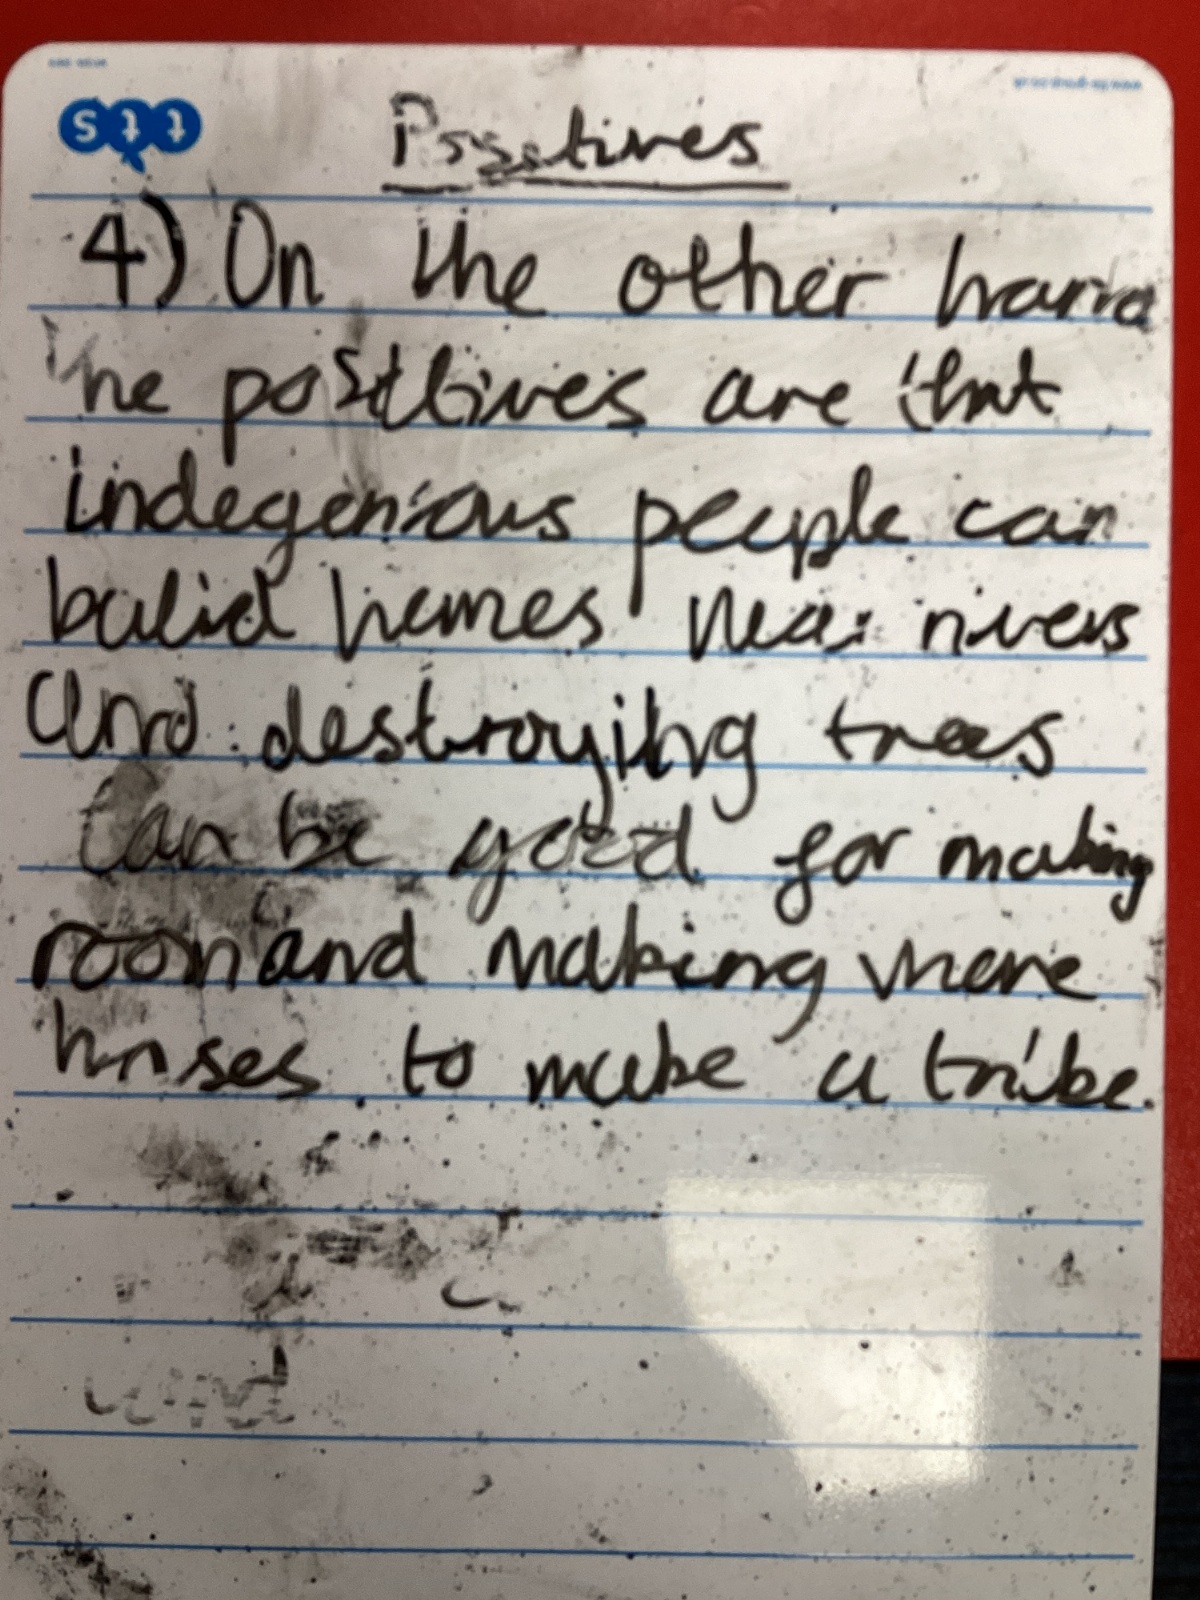 tts
Positives
4) On the other hand
the positives are that
indegenious people can
bulid homes near rivers
and destroying trees
can be good for making
room and making more
houses to make a tribe.